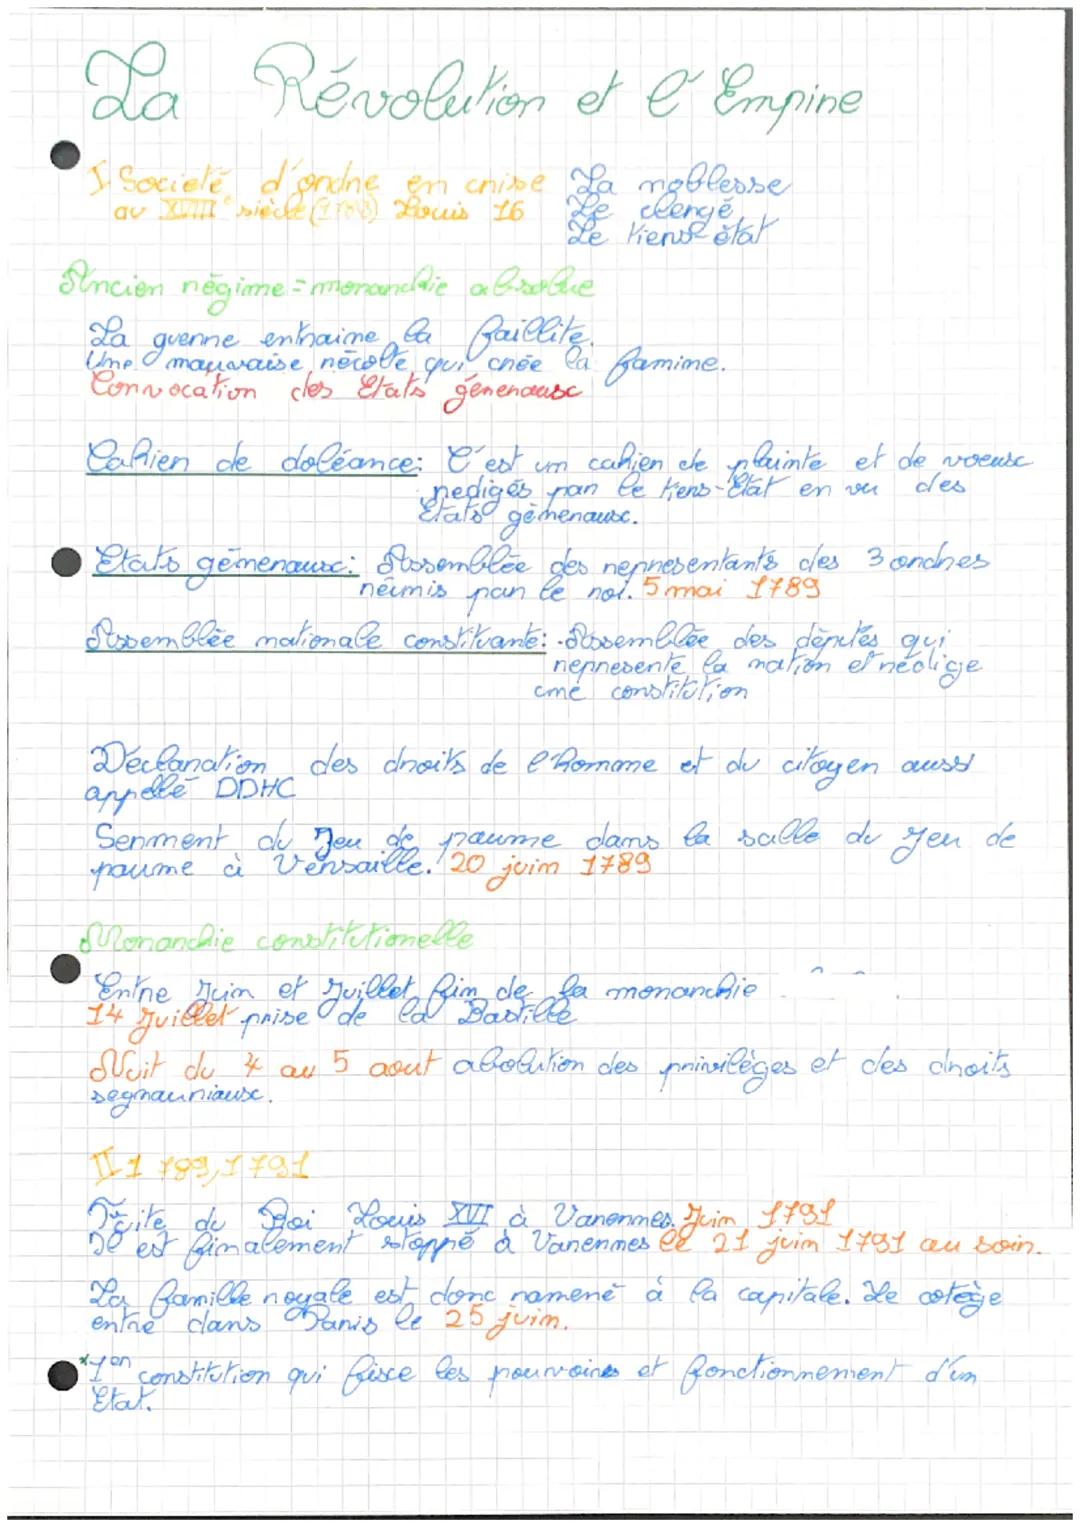 La Révolution et l'Empire
I. Societé d'ordre en crise
au XVIIIe siècle (1788) Louis 16
La noblesse
Le clergé
Le tiers état
Ancien régime = monarchie absolue
La guerre entraine la faillite.
Une mauvaise récolte, qui crée la famine.
Convocation des Etats généraux
Cahier de doléance: C'est un cahier de plainte et de voeux
redigés par le tiers-Etat en vu des
Etats généraux.
Etats généraux: Assemblée des représentants des 3 ordres
réunis par le roi. 5 mai 1789
Assemblée nationale constituante: Assemblée des députés qui
représente la nation et rédige
une constitution
Déclaration des droits de l'homme et du citoyen aussi
appellé DDHC
Serment du Jeu de paume dans la salle du Jeu de
paume à Versaille. 20 juin 1789
Monarchie constitutionelle
Entre Juin et Juillet fin de la monarchie
14 Juillet prise de la Bastille
Nuit du 4 au 5 aout abolution des privilèges et des droits
segnauriaux.
II-1 789, 1791
du Roi Louis XVI à Varennes. Juin 1791
Il est finalement stoppé à Varennes le 21 juin 1791 au soir.
La famille royale est donc ramené à la capitale. Le cotège
entre dans Paris le 25 juin.
*1er constitution qui fixe les pouvoirs et fonctionnement d'un
Etat.